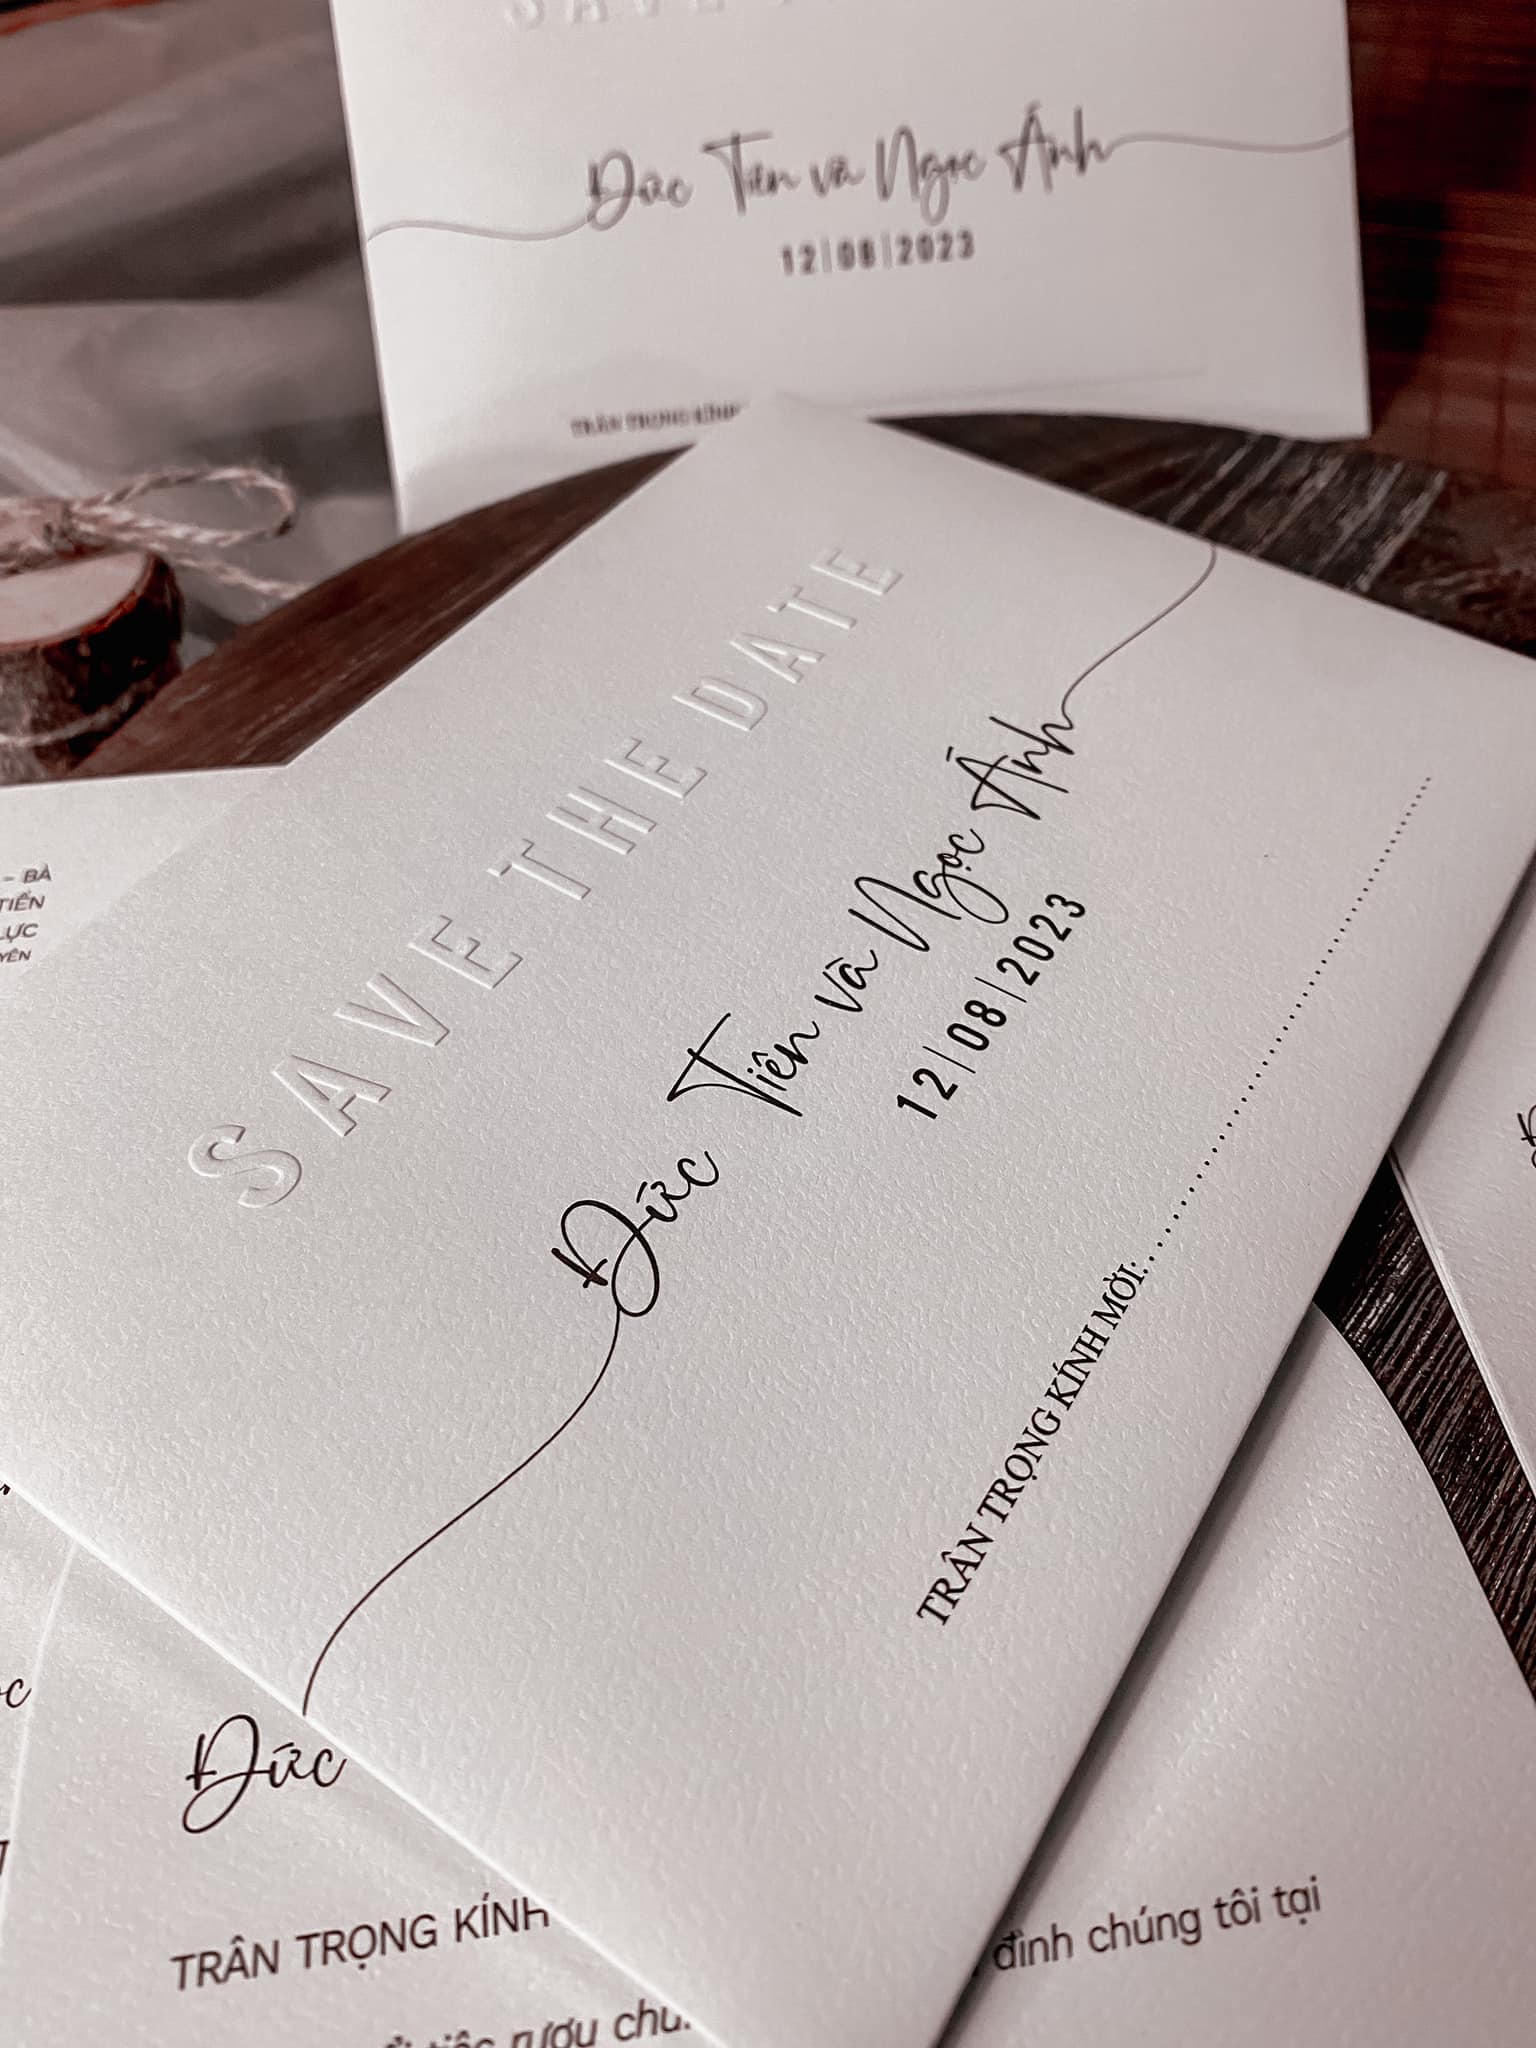 SAVE
Đức Tiên và Ngọc Ánh
12|08|2023
TRÂN TRỌNG KÍNH
SAVE THE DATE
Đức Tiên và Ngọc Ánh
12|08|2023
TRÂN TRỌNG KÍNH MỜI:
– BÀ
TIẾN
LỰC
YÊN
Đức
TRÂN TRỌNG KÍNH
đình chúng tôi tại
tiệc rượu